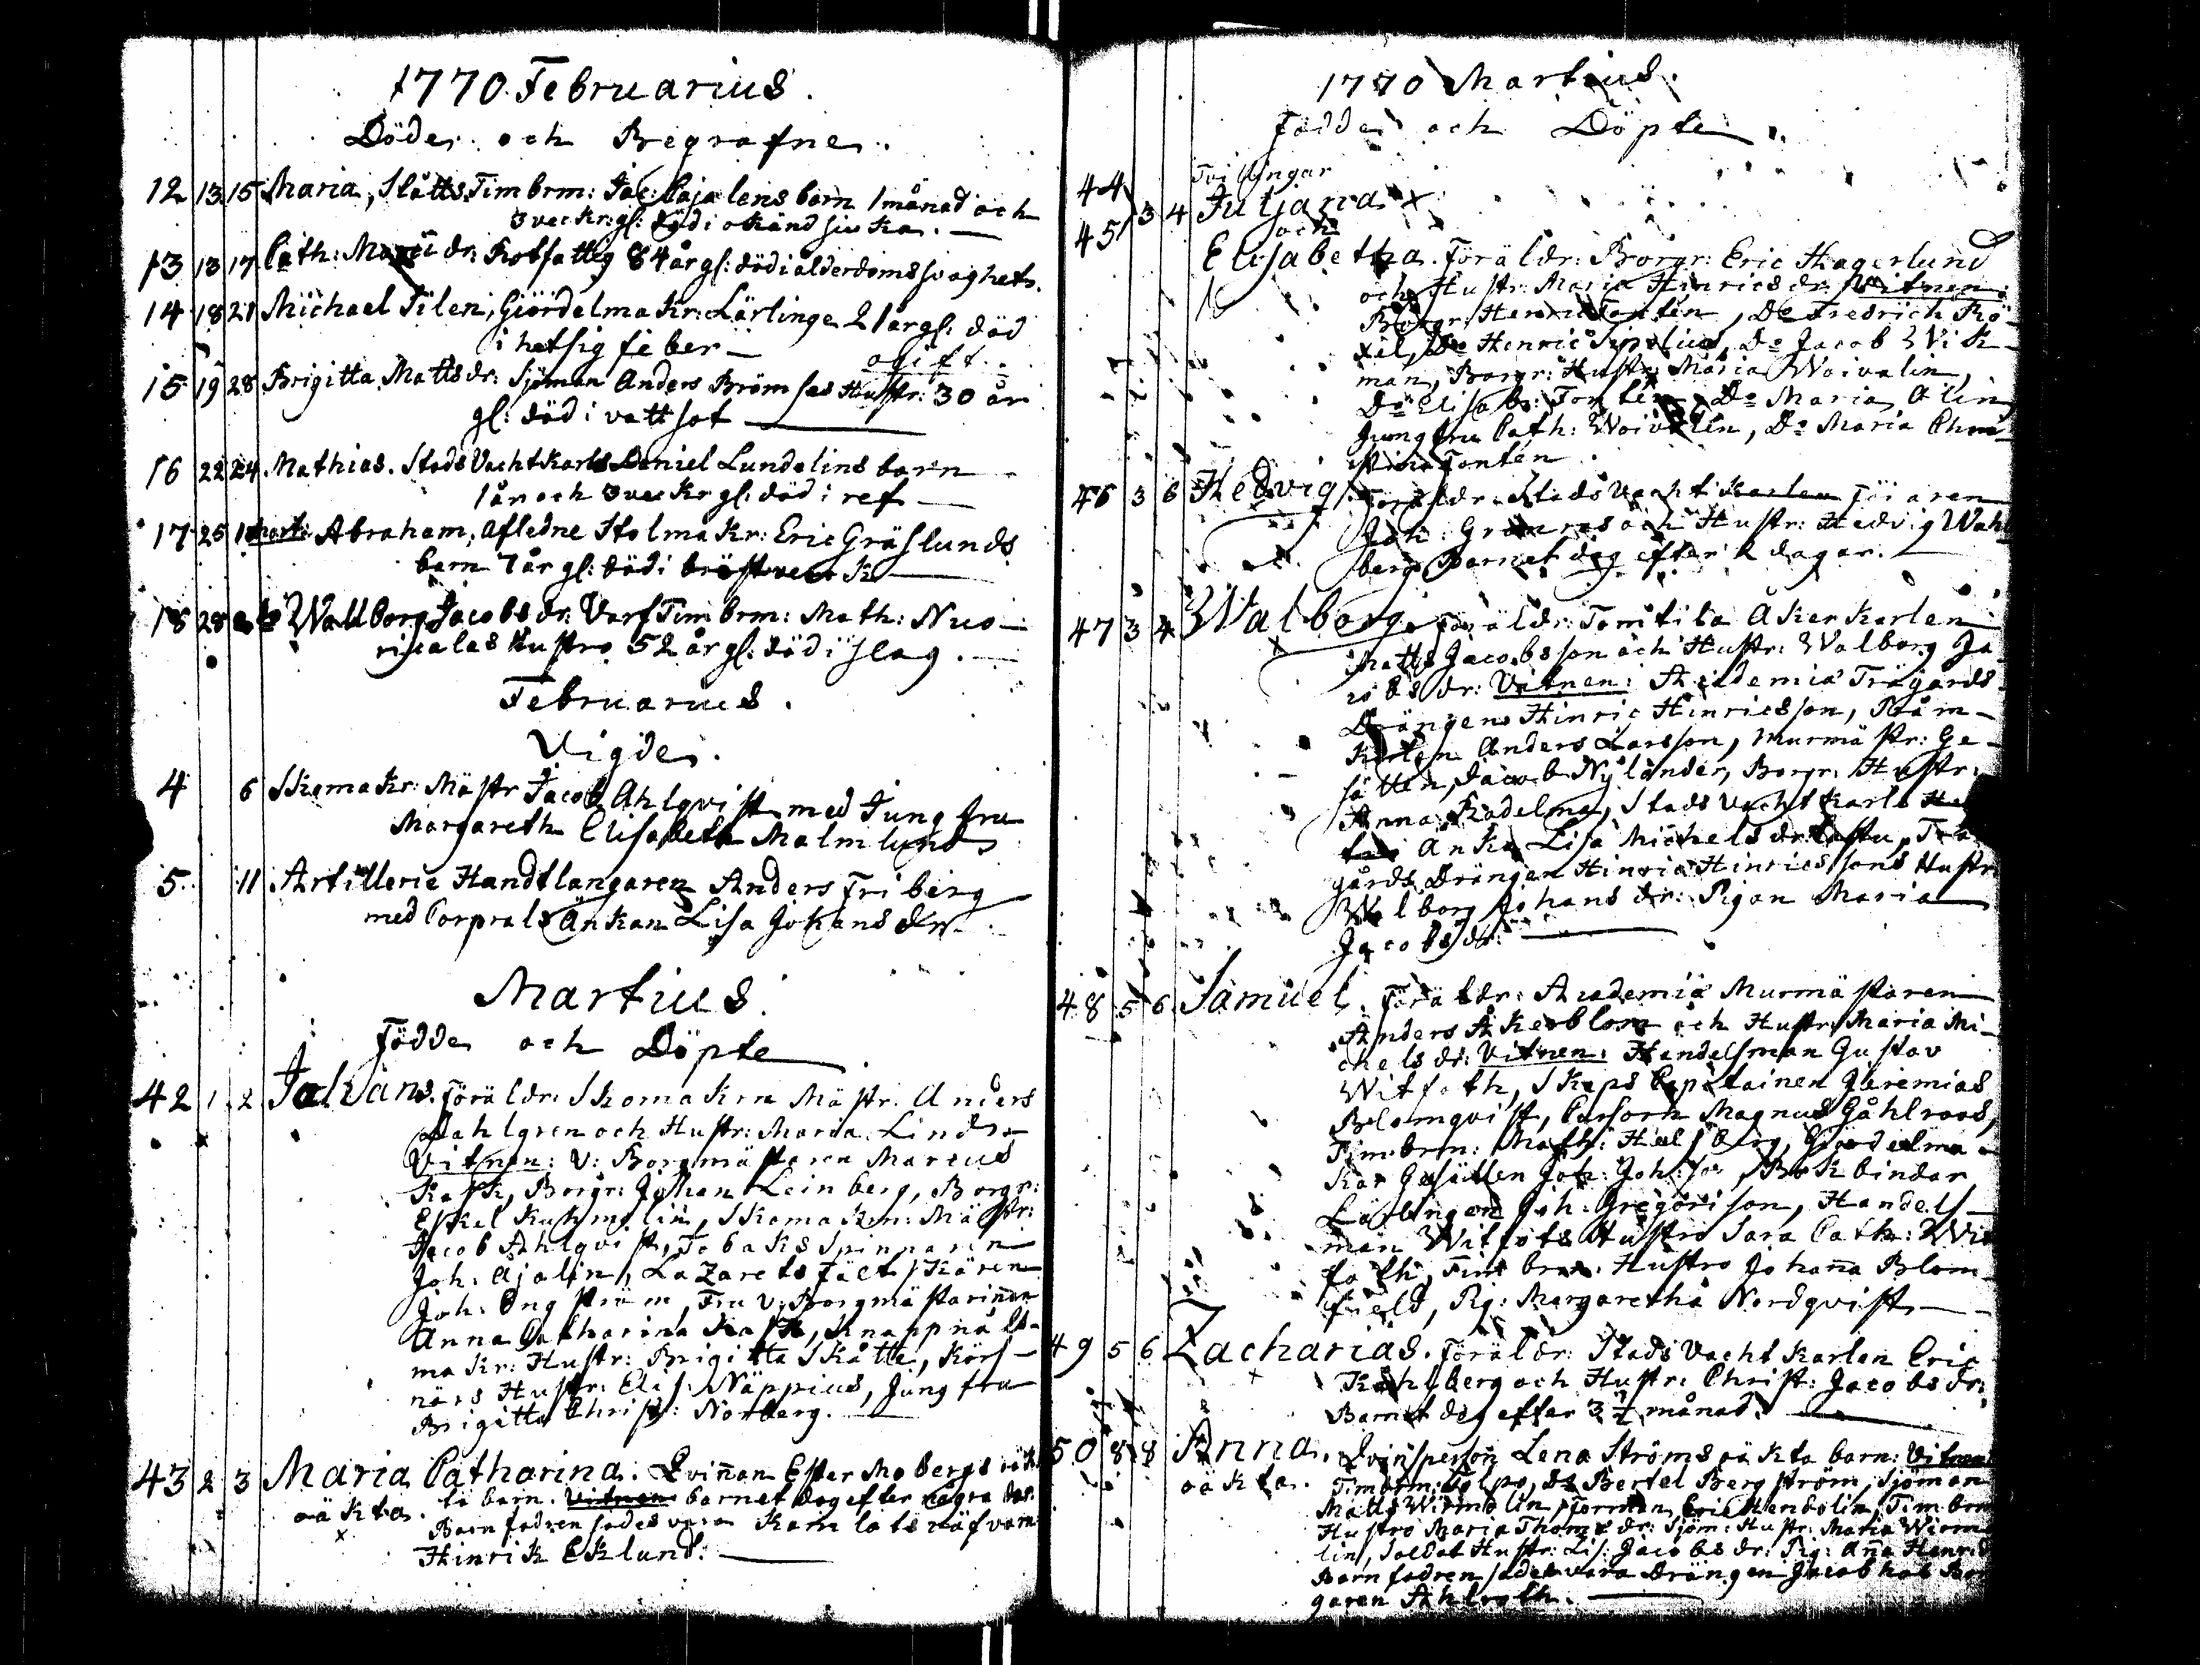 1770 Februarius.
Döde och Begrafne.
12 13 15 Maria, Slåtts Timbrm: Jac: Cajalens barn 1 månad och
3 veckr: gl: död i okänd siuka.
13 13 17 Cath: dr: Rotfattig 84 år gl: död i ålderdoms svaghet.
14 18 21 Michael Tilen, Giördelmakr: Lärlinge 21 år gl: död
i hetsig feber ogift.
15 19 28 Brigitta Mattsdr: Sjöman Anders Brömsas Hustr: 30 år
gl: död i vattsot
16 22 24 Mathias. Stads Vacht Karls Daniel Lundelins barn
1 år och 3 veckr gl: död i ref
17 25 1 Mart: Abraham, Afledne Stolmakr: Eric Gräslunds
barn 7 år gl: död i bröstverk
18 28 Wallborg Jacobsdr: Varf Timbrm: Math: Nuo-
rivalas Hustro 52 år gl: död i slag.
Februarius.
Vigde.
4 6 Skomakr: Mästr Jacob Ahlqvist med Jungfru
Margareth Elisabeth Malmlund
5. 11 Artillerie Handtlangaren Anders Friberg
med Corprals Änkan Lisa Johansdr.
Martius.
Födde och Döpte
42 1 2 Johans. Föräldr: Skomakre Mästr: Anders
Dahlgren och Hustr: Maria Lind
Vitnen: V: Borgmästaren Marcus
Kask, Borgr: Johan Leinberg, Borgr:
Eskel Kuhmolin, Skomakre: Mästr:
Jacob Ahlqvist, Tobaks Spinnaren
Joh: Ajalin, Lazarets Fältskären
Joh: Engström, Fru V: Borgmästarinnan
Anna Catharina Kask, Knappnåls-
makr: Hustr: Brigitta Skåtte, Körs-
närs Hustr: Elis: Näppius, Jungfru
Brigitta Christ: Norberg.
43 2 3 Maria Catharina. Qvinnan Ester Mobergs oäk-
oäkta. ta barn. Vitnen barnet dog efter några dar.
x Barnfadren sades vara Kamlots väfvarn
Hinrik Eklund.
1770 Martius.
Födde och Döpte
Tvillingar
44 Juliana x
45 3 4 och
Elisabetha. Föräldr: Borgr: Eric Hagerlund
och Hustr: Maria Hinricsdr: Vitnen:
Borgr: Henric Tontén, Do Fredrich Rö-
xel, Do Henric Sipelius, Do Jacob Wik-
man, Borgr: Hustr: Maria Woivalin,
Do Elisab: Tontén, Do Maria Alin
Jungfru Cath: Woivalin, Do Maria Chri-
stina Tontén.
46 3 6 Hedvig. Föräldr: Stads Vacht Karlen Föraren
Joh: och Hustr: Hedvig Wahl-
berg Barnet dog efter 2 dagar.
47 3 4 Walborg. Föräldr: Tomtita Åkerkarlen
Matts Jacobsson och Hustr: Walborg Ja-
cobsdr: Vitnen: Academiæ Trägårds
Drängen Hinric Hinricsson, Råm-
Karlen Anders Larsson, Murmästr: Ge-
sällen, Jacob Nylander, Borgr: Hustr:
Anna Radelma, Stads Vacht Karls
Anka Lisa Michelsdr: Trä-
gårds Drängen Hinric Hinricssons Hustr:
Walborg Johansdr: Pigan Maria
Jacobsdr:
48 5 6 Samuel. Föräldr: Academiæ Murmästaren
Anders Åkerblom och Hustr: Maria Mi-
chelsdr: Vitnen: Handelsman Gustav
Witfoth, Skeps Capitainen Jeremias
Blomqvist, Magnus Gåhlroos,
Timbrm: Math: Helsberg, Gjördelma-
kar Gesällen Joh: Joh:son, Bokbindar
Lärlingen Joh: Gregorison, Handels-
man Witfots Hustro Sara Cath: Wit-
foth, Timbrm: Hustro Johanna Blom-
field, Pig: Margaretha Nordqvist
49 5 6 Zacharias. Föräldr: Stads Vacht Karlen Eric
Kahlberg och Hustr: Christ: Jacobsdr:
Barnet dog efter 3 1/2 månad.
50 8 8 Anna. Qvinsperson Lena Ströms oäkta barn: Vitnen:
oäkta. Timbrm: Tolpo, Do Bertel Bergström, Sjöman
Matts Wirmolin, Eric Stenbolin, Timbrm
Hustro Maria Thomædr: Sjöm: Hustr: Maria Wirmo-
lin, Soldat Hustr: Lis: Jacobsdr: Pig: Anna Henricsd
Barnfadren sades vara Drängen Jacob hos Bor-
garen Ahlroth.